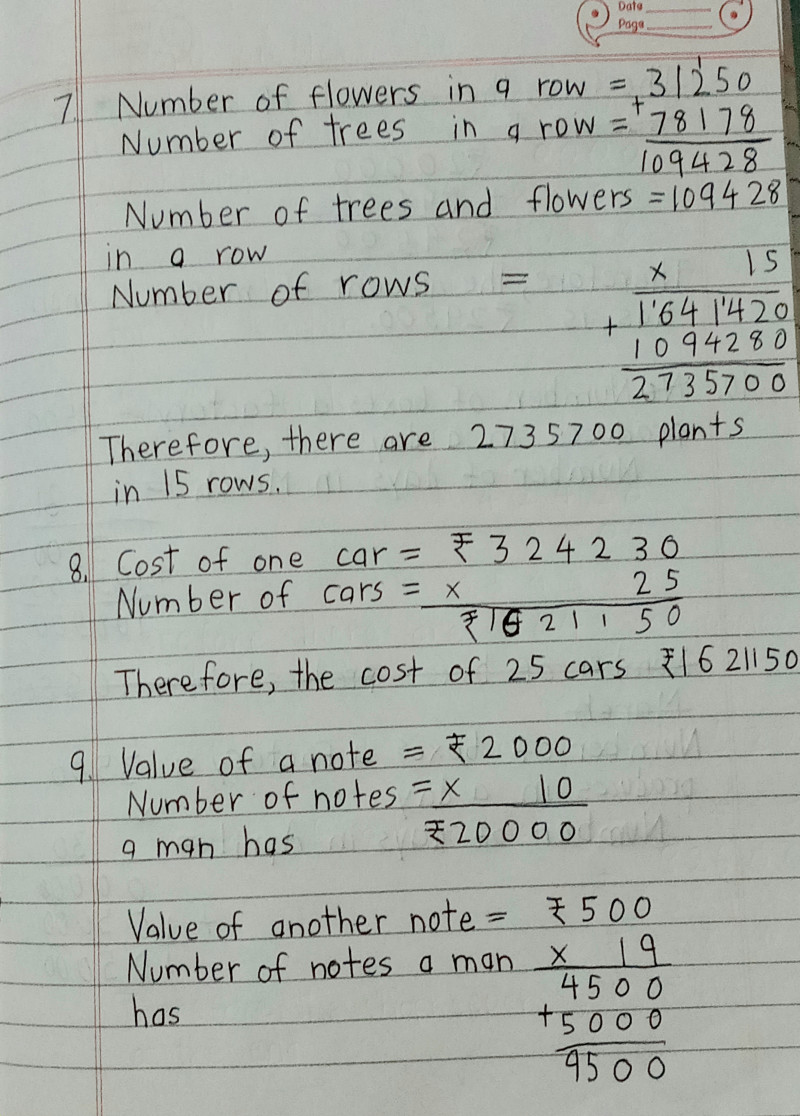 Date
Page
7. Number of flowers in a row = 31250
Number of trees in a row = + 78178
109428
Number of trees and flowers = 109428
in a row
Number of rows = x 15
+ 1641420
1094280
2735700
Therefore, there are 2735700 plants
in 15 rows.
8. Cost of one car = ₹324230
Number of cars = x 25
₹1621150
Therefore, the cost of 25 cars ₹1621150
9. Value of a note = ₹2000
Number of notes = x 10
a man has ₹20000
Value of another note = ₹500
Number of notes a man x 19
has 4500
+5000
9500